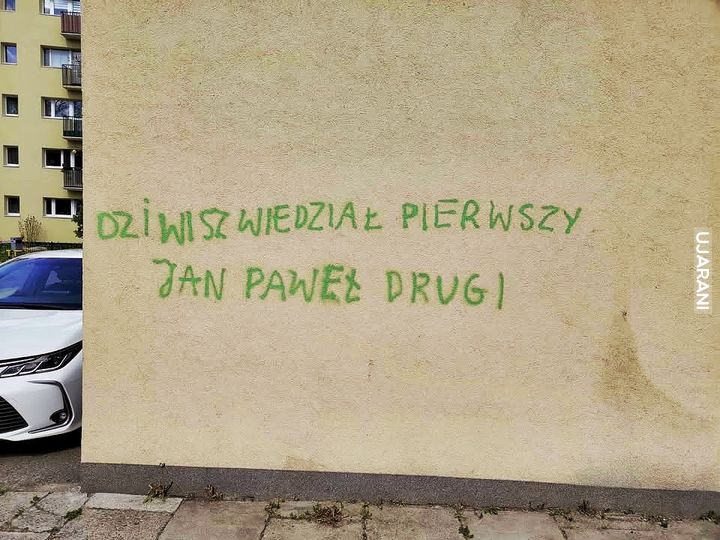 DZiWISZ WIEDZIAŁ PIERWSZY
JAN PAWEŁ DRUGI
UJARANI